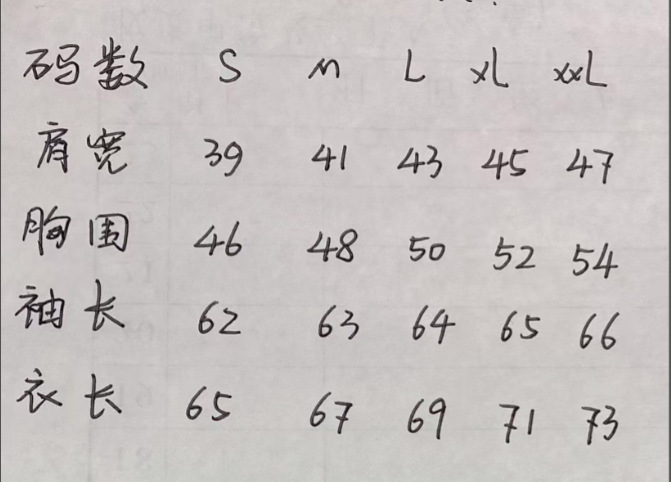 码数 S M L XL XXL
肩宽 39 41 43 45 47
胸围 46 48 50 52 54
袖长 62 63 64 65 66
衣长 65 67 69 71 73